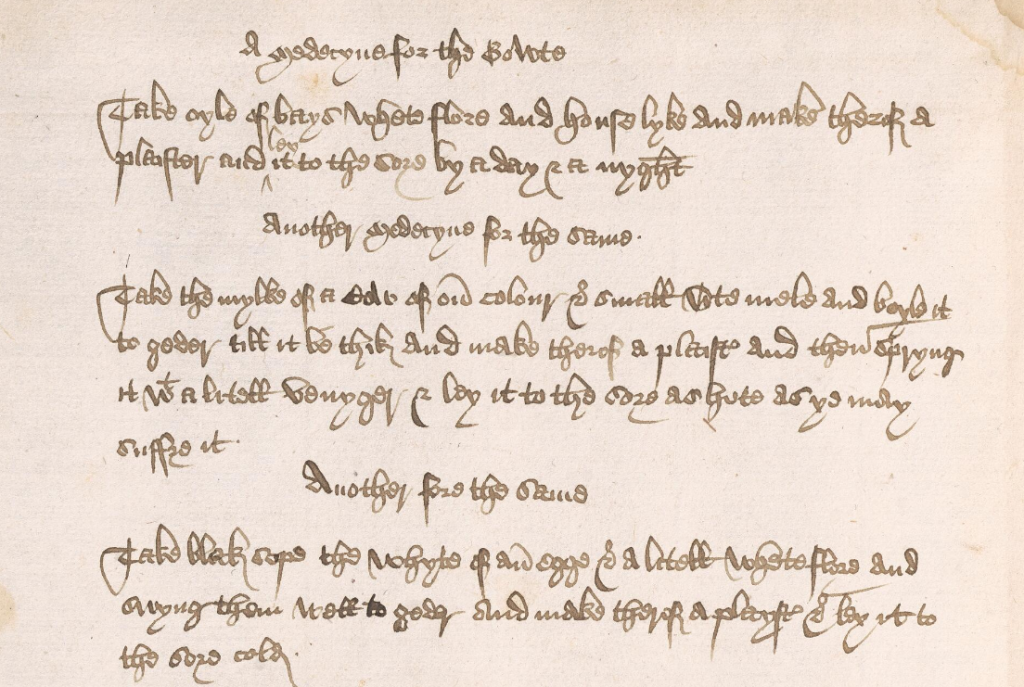 A medecyne for the Gowte
Take oyle of bays whete flore and house lyke and make therof a
plaister and ley it to the sore by a day & a nyght
Another medecyne for the same
Take the mylke of a Cow of on colour & small Ote mele and boyle it
to geder till it be thik and make therof a plaist and then spryng
it wt a litell venyger & ley it to the sore as hote as ye may
suffre it
Another fore the same
Take blak sope the whyte of an egge & a litell whete flore and
swyng them well to geder and make therof a playst & ley it to
the sore cold